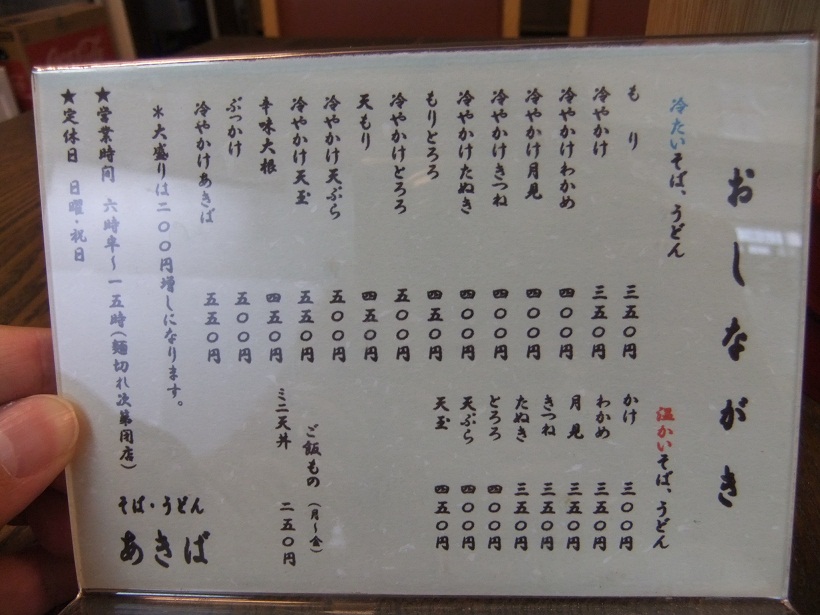 おしながき
冷たいそば、うどん
もり 三五〇円
冷やかけ 三五〇円
冷やかけわかめ 四〇〇円
冷やかけ月見 四〇〇円
冷やかけきつね 四〇〇円
冷やかけたぬき 四〇〇円
もりとろろ 四五〇円
冷やかけとろろ 五〇〇円
天もり 四五〇円
冷やかけ天ぷら 五〇〇円
冷やかけ天玉 五五〇円
辛味大根 四五〇円
ぶっかけ 五〇〇円
冷やかけあきば 五五〇円
温かいそば、うどん
かけ 三〇〇円
わかめ 三五〇円
月見 三五〇円
きつね 三五〇円
たぬき 三五〇円
とろろ 四〇〇円
天ぷら 四〇〇円
天玉 四五〇円
ご飯もの（月〜金）
ミニ天丼 二五〇円
＊大盛りは二〇〇円増しになります。
★営業時間 六時半〜一五時（麺切れ次第閉店）
★定休日 日曜・祝日
そば・うどん
あきば